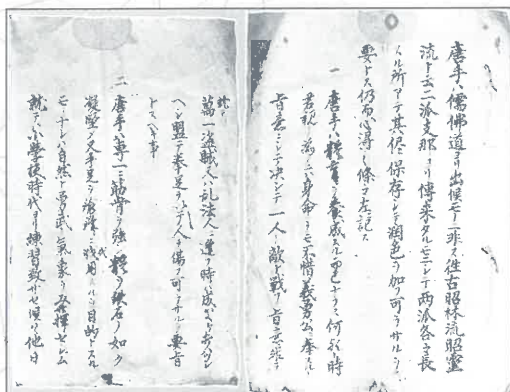 唐手ハ儒佛道ヨリ出候モノニ非ズ往古昭林流昭霊
流ト云二派支那ヨリ傳来シタルモノニシテ両派各々長
スル所アリテ其侭保存シテ潤色ヲ加フ可ラザルヲ
要トス仍而心得ノ條々左記ス
一 唐手ハ體育ヲ養成スル而已ナラズ何レノ時
君親ノ為メニハ身命ヲモ不惜義勇公ニ奉スルノ
旨意ニシテ決シテ一人ノ敵ト戦フ旨意ニ非ズ
就テハ
萬一盗賊又ハ乱法人ニ逢フ時ハ成ル丈ケ打ハズス
ベシ盟テ拳足ヲ以テ人ヲ傷フ可ラザルヲ要旨
トスベキ事
二 唐手ハ専一ニ筋骨ヲ強シ體ヲ鉄石ノ如ク
凝堅メ又手足ヲ鎗鋒ニ代用スルヲ目的トスル
モノナレバ自然ト勇武ノ氣象ヲ発揮セシム
就テハ小學校時代ヨリ練習致サセ候ハヾ他日